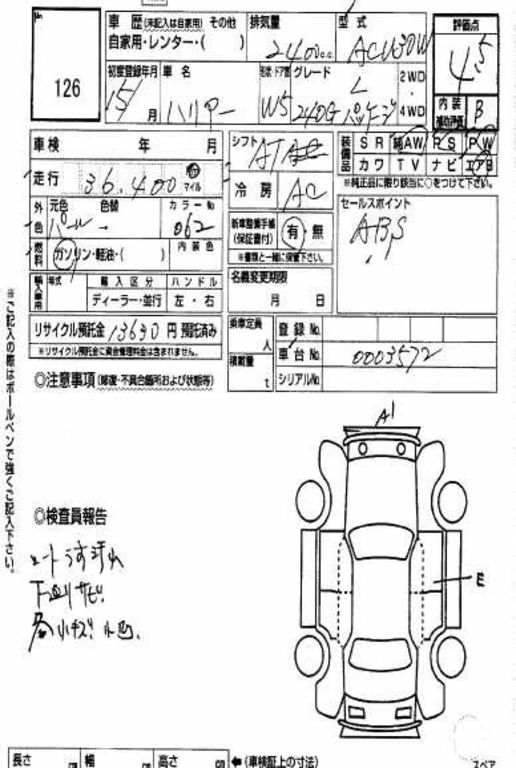 No.
126
車 歴 (未記入は自家用) その他
自家用・レンター・( )
排気量
2400cc
型 式
ACU30W
評価点
4.5
初度登録年月
15 月
車 名
ハリアー
形状 ドア数
W5
グレード
L
240G パッケージ
2WD
4WD
内 装
補助評価
B
車検 年 月
走行 36,400 マイル
外 色
元色 パール
色替
カラー No
062
燃料
ガソリン・軽油・( )
内 装 色
輸入車用
年式
輸 入 区 分
ディーラー・並行
ハ ン ド ル
左 ・ 右
リサイクル預託金 13630 円 預託済み
※リサイクル預託金に資金管理料金は含まれません。
シフト
AT
冷 房
AC
新車整備手帳
(保証書付)
有・無
※書類と一緒に保管下さい。
名義変更期限
月 日
装備品
S R 純AW R S P W
カ ワ T V ナ ビ エアB
※純正品に限り該当に○をつけて下さい。
セールスポイント
ABS
乗車定員
人
積載量
t
登 録 No.
車 台 No.
0003572
シリアルNo.
※ご記入の際はボールペンで強くご記入下さい。
◎注意事項 (修復・不具合箇所および状態等)
A1
E
◎検査員報告
シートうす汚れ
下廻りサビ
各小キズ 小凹.
長さ cm
幅 cm
高さ cm
(車検証上の寸法)
スペア